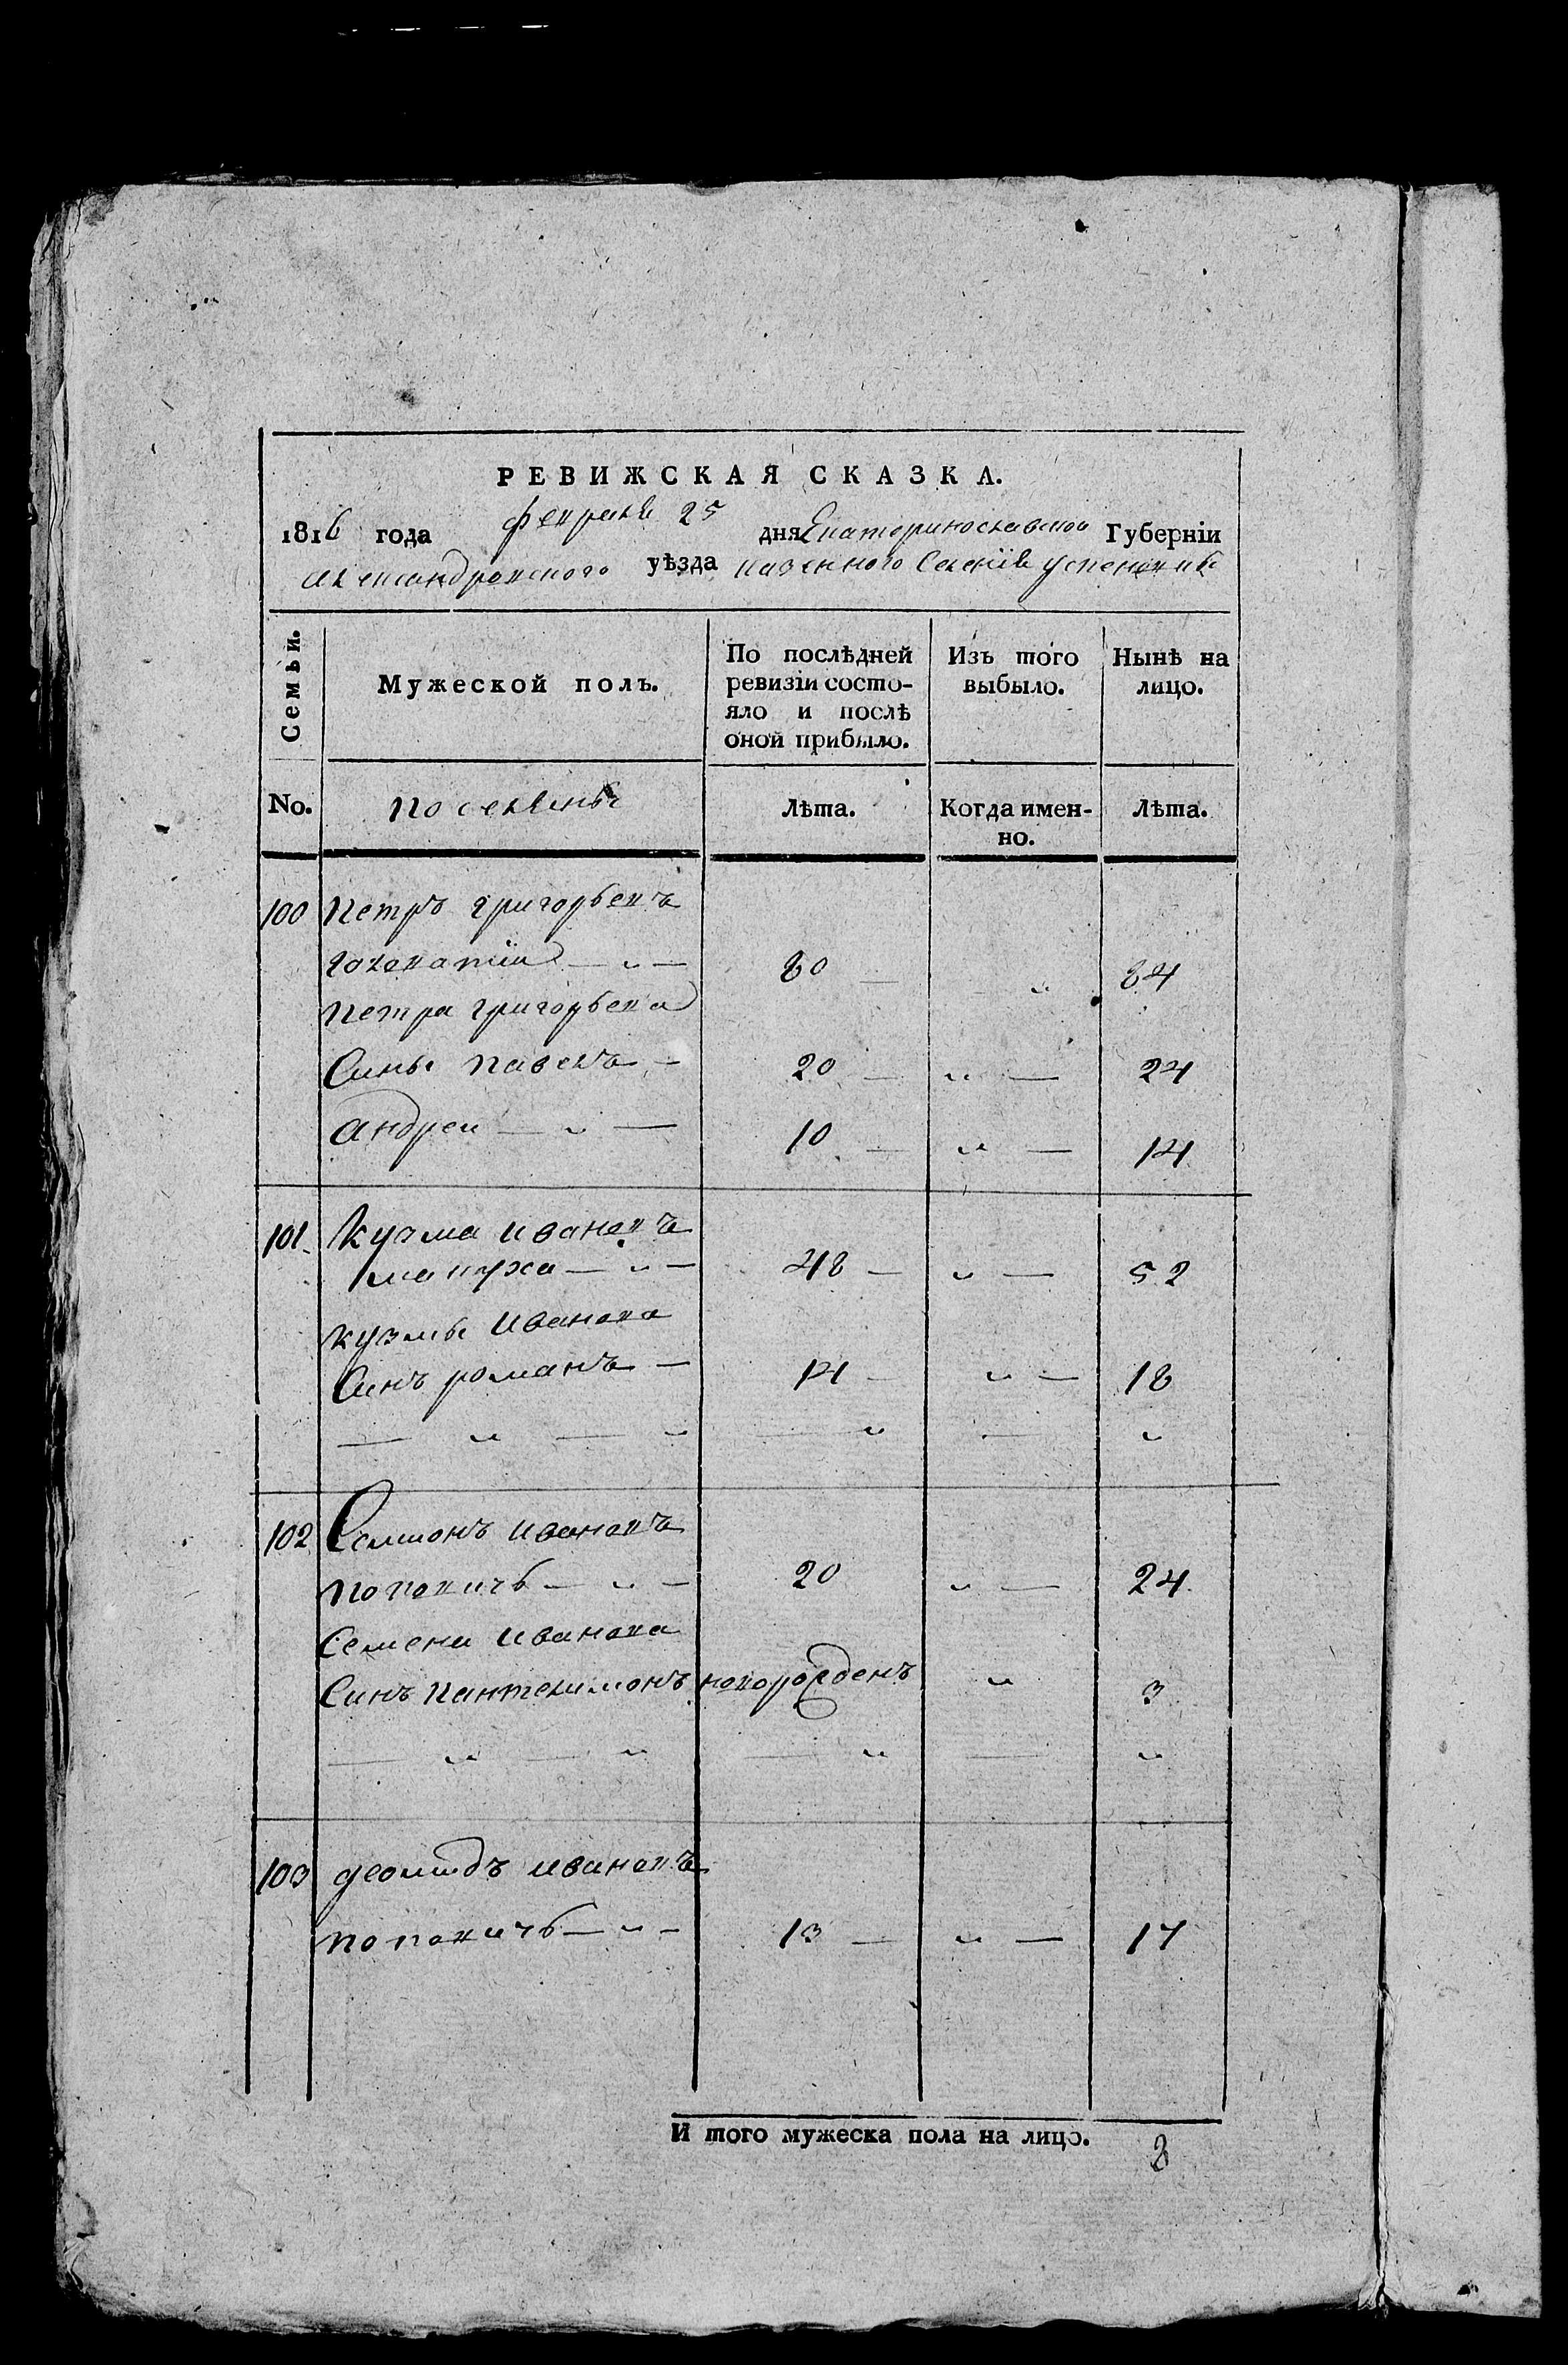 РЕВИЖСКАЯ СКАЗКА.
1816 года февраля 25 дня Екатеринославской Губернiи
александровского уѣзда казенного Селенiя успеновки
Семьи.
Мужеской полъ.
По послѣдней ревизiи состо-
яло и послѣ
оной прибыло.
Изъ того
выбыло.
Нынѣ на
лицо.
No.
поселяне
Лѣта.
Когда имен-
но.
Лѣта.
100 Петръ григорьевъ
80 „ 84
Петра григорьева
Сины павелъ — 20 — „ — 24
андреи — „ — 10 — „ — 14
101. Кузма ивановъ
мацуха — „ — 48 — „ — 52
кузмы иванова
Синъ романъ — 14 — „ — 18
— „ — „ — „ — „
102 Семионъ ивановъ
поповичь — „ — 20 „ — 24
Семена иванова
Синъ пантелимонъ новорожденъ „ 3
— „ — „ — „ — „
103 деомидъ ивановъ
поповичь — „ — 13 — „ — 17
И того мужеска пола на лицо. 8